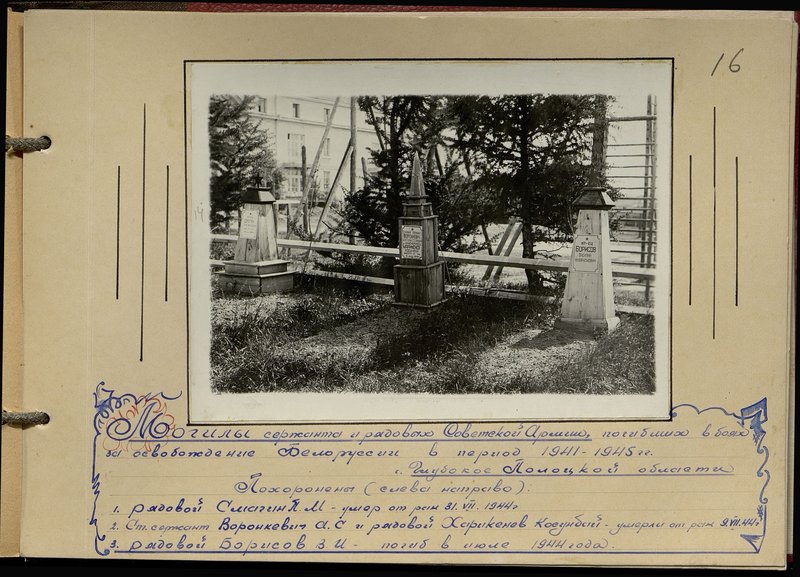 16
БОРИСОВ
Могилы сержанта и рядовых Советской Армии, погибших в боях
за освобождение Белоруссии в период 1941-1945 гг.
г. Глубокое Полоцкой области
Похоронены (слева направо):
1. рядовой Смагин П.М - умер от ран 31.VII.1944г
2. Ст. сержант Воронкевич А.С и рядовой Харикенов Косумбай - умерли от ран 9.VII.44г
3. рядовой Борисов З.И - погиб в июле 1944 года.